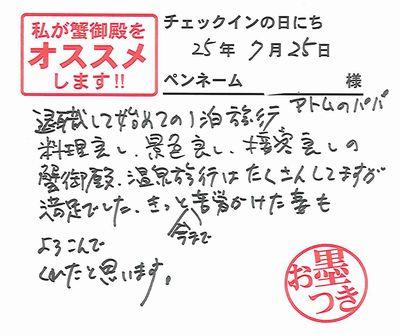 私が蟹御殿を
オススメ
します!!
チェックインの日にち
25年 7月25日
ペンネーム 様
アトムのパパ
退職して始めての1泊旅行
料理良し、景色良し、接客良しの
蟹御殿、温泉旅行はたくさんしてますが
満足でした。きっと苦労かけた妻も
今まで
よろこんで
くれたと思います。
お墨つき